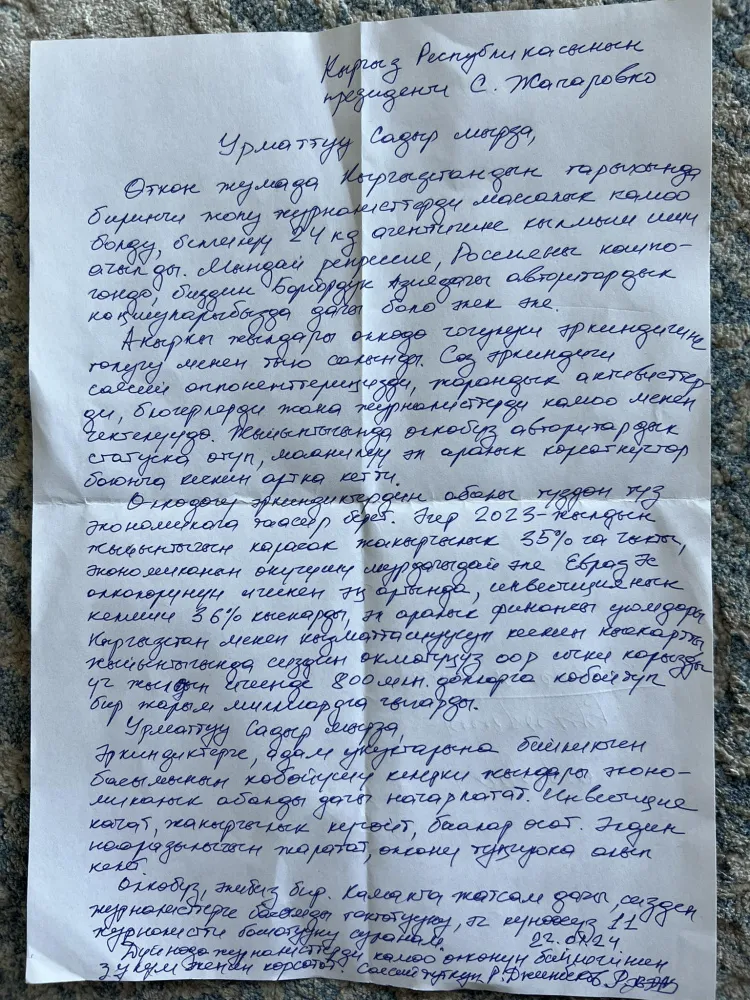 Кыргыз Республикасынын
президенти С. Жапаровко
Урматтуу Садыр мырза,
Откон жумада Кыргызстандын тарыхында
биринчи жолу журналисттерди массалык камоо
болду, белгилүү 24 kg агентигине кылмыш иши
ачылды. Мындай репрессие, Россиены кошпо-
гондо, биздин Борбордук Азиедагы авторитардык
коңшуларыбызда дагы боло элек эле.
Акыркы жылдары олкодо чогулуш эркиндигине
толугу менен тыю салынды. Соз эркиндиги
саясий оппоненттериңизди, жарандык активисттер-
ди, блогерлерди жана журналисттерди камоо менен
чектелүүдо. Жыйынтыгында олкобүз авторитардык
статуска отүп, маанилүү эл аралык корсоткүчтор
боюнча кескин артка кетти.
Олкодогү эркиндиктердин абалы түздон түз
экономикага таасир берет. Эгер 2023-жылдын
жыйынтыгын карасак жакырчылык 35% га чыкты,
экономиканын осүүшү мурдагыдай эле ЕврАзЭс
олколорүнүн ичинен эң артында, инвестициянын
колому 36% кыскарды, эл аралык финансы уюмдары
Кыргызстан менен кызматташуусун кескин кыскартты
жыйынтыгында сиздин окмотүңүз оор сырткы карызды
үч жылдын ичинде 800 млн. долларга кобойтүп
бир жарым миллиардга чыгарды.
Урматтуу Садыр мырза,
Эркиндиктерге, адам укуктарына бийликтин
басымынын кобойүшү кийинки жылдары эконо-
микалык абалды дагы начарлатат. Инвестиция
качат, жакырчылык күчойт, баалар осот. Элдин
нааразылыгын жаратат, олкону туңгуюкка алып
келет.
Олкобүз, элибиз бир. Камакта жатсам дагы, сизден
журналисттерге басымды токтотууну, эч күноосүз 11
журналисти бошотууну суранам. 22.01.24.
Дүйнодо журналисттерди камоо олконүн бийлигинин
зулум экенин корсотот. Саясий туткун Р. Джеенбеков